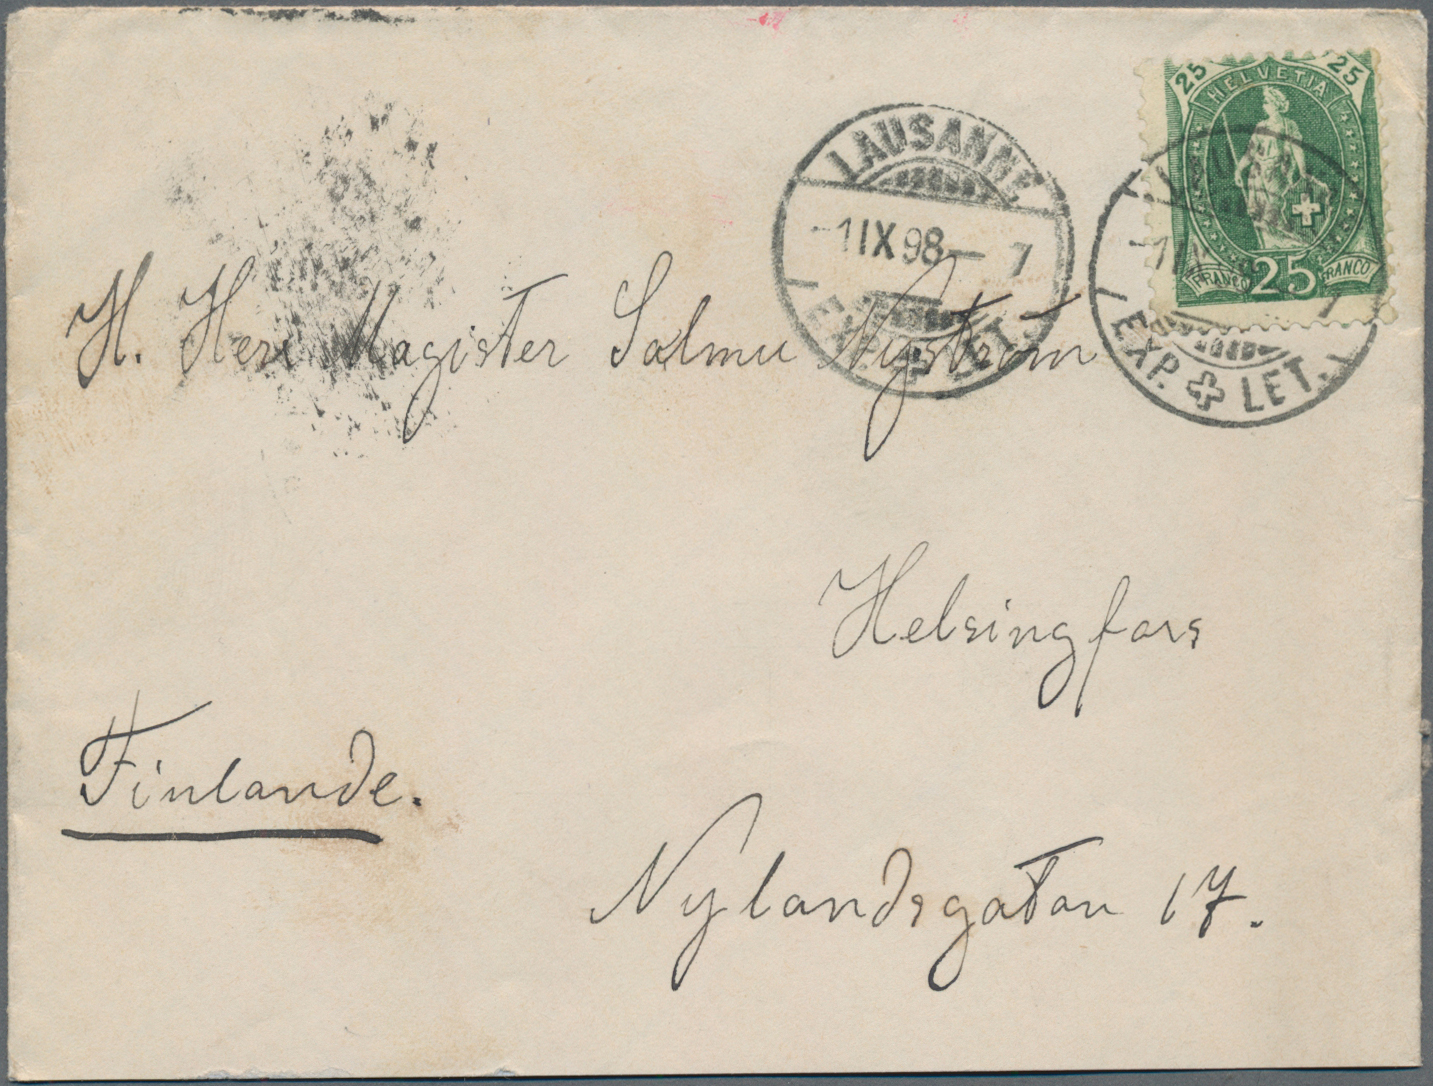 25 25
HELVETIA
FRANCO 25 FRANCO
LAUSANNE
-1 IX 98 - 7
EXP. LET.
-1 IX 7
EXP. LET.
H. Herr Magister Salmu Nyström
Helsingfors
Finlande.
Nylandsgatan 17.